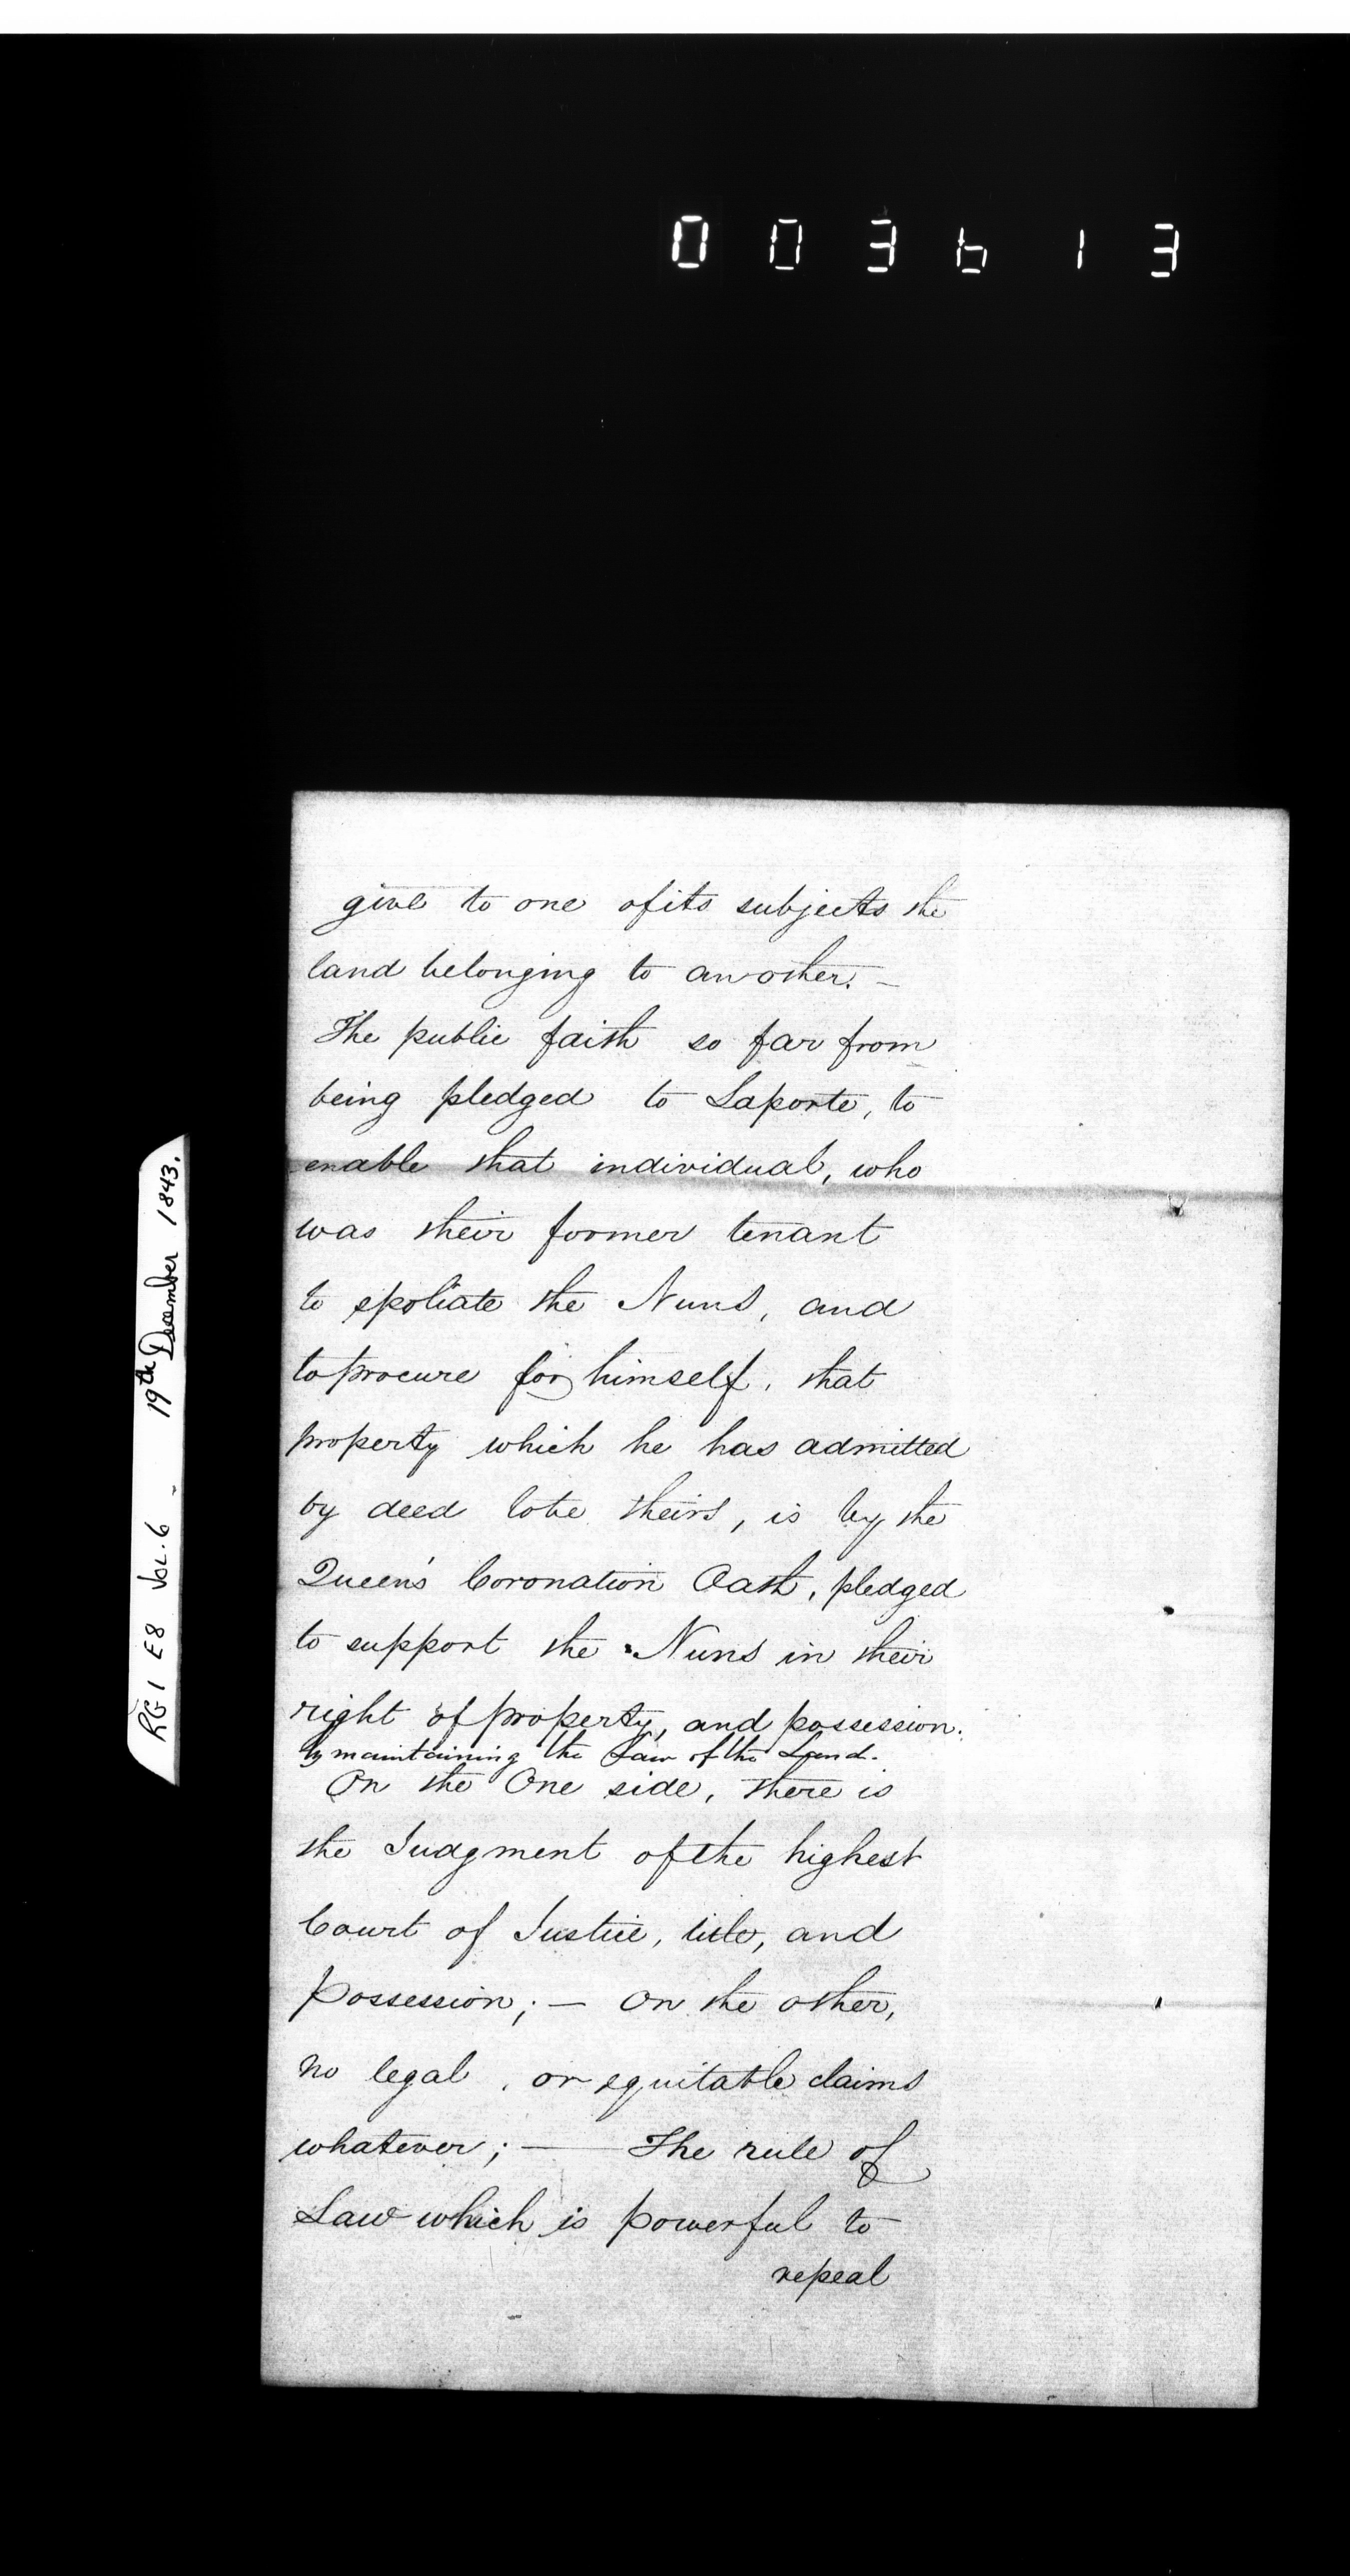 003613
RG1 E8 Vol. 6 - 19th December 1843.
give to one of its subjects the
land belonging to another. -
The public faith so far from
being pledged to Laporte, to
enable that individual, who
was their former tenant
to spoliate the Nuns, and
to procure for himself, that
property which he has admitted
by deed to be theirs, is by the
Queen's Coronation Oath, pledged
to support the Nuns in their
right of property, and possession.
by maintaining the Law of the Land.
On the One side, there is
the Judgment of the highest
Court of Justice, title, and
Possession; — On the other,
no legal, or equitable claims
whatever; — The rule of
Law which is powerful to
repeal